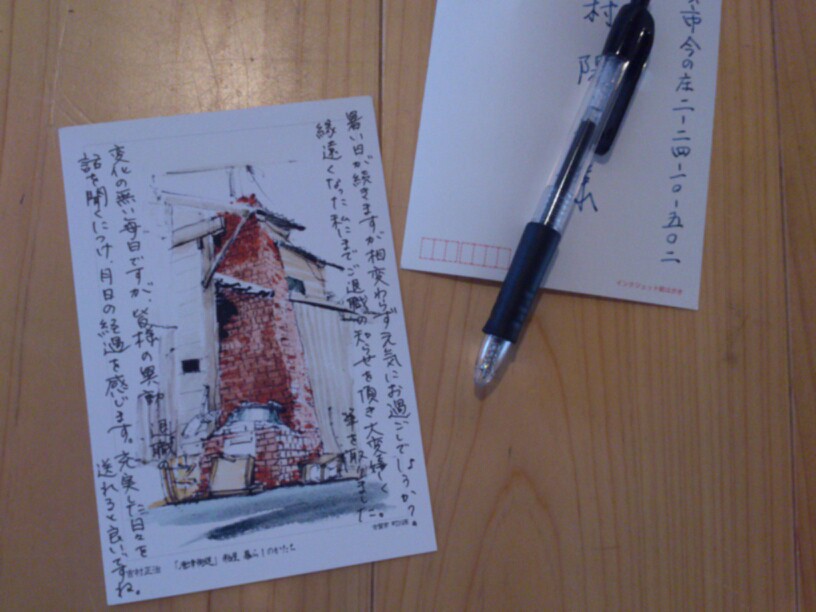 暑い日が続きますが相変わらず元気にお過ごしでしょうか?
縁遠くなった私にまでご退職の知らせを頂き大変嬉しく
筆を取りました。
変化の無い毎日ですが、皆様の異動 退職の
話を聞くにつけ、月日の経過を感じます。充実した日々を
送れると良いですね。
吉村正治
市今の庄二-二四-一〇-五〇二
村 陽
インクジェット紙はがき